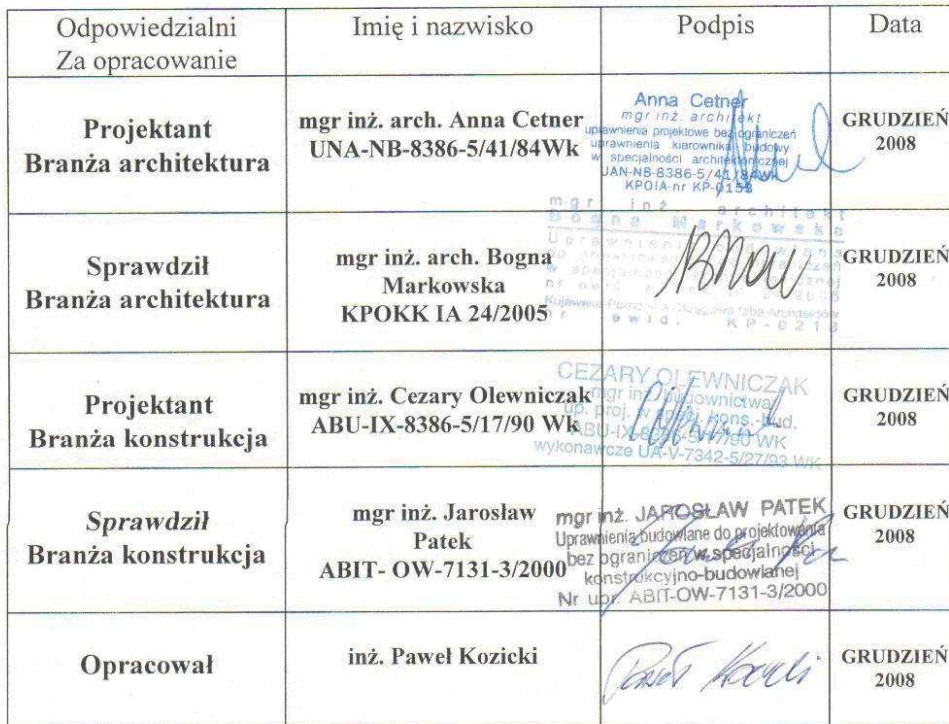 Odpowiedzialni
Za opracowanie
Imię i nazwisko
Podpis
Data
Projektant
Branża architektura
mgr inż. arch. Anna Cetner
UNA-NB-8386-5/41/84Wk
Anna Cetner
mgr inż. architekt
uprawnienia projektowe bez ograniczeń
uprawnienia kierownika budowy
w specjalności architektonicznej
UAN-NB-8386-5/41/84Wk
KPOIA-nr KP-0153
GRUDZIEŃ
2008
Sprawdził
Branża architektura
mgr inż. arch. Bogna
Markowska
KPOKK IA 24/2005
mgr inż. architekt
Bogna Markowska
nr ewid. KP-0213
GRUDZIEŃ
2008
Projektant
Branża konstrukcja
mgr inż. Cezary Olewniczak
ABU-IX-8386-5/17/90 Wk
CEZARY OLEWNICZAK
mgr inż. budownictwa
up. proj. w spec. kons.-bud.
ABU-IX-8386-5/17/90 WK
wykonawcze UA-V-7342-5/27/93 WK
GRUDZIEŃ
2008
Sprawdził
Branża konstrukcja
mgr inż. Jarosław
Patek
ABIT- OW-7131-3/2000
mgr inż. JAROSŁAW PATEK
Uprawnienia budowlane do projektowania
bez ograniczeń w specjalności
konstrukcyjno-budowlanej
Nr upr. ABIT-OW-7131-3/2000
GRUDZIEŃ
2008
Opracował
inż. Paweł Kozicki
GRUDZIEŃ
2008